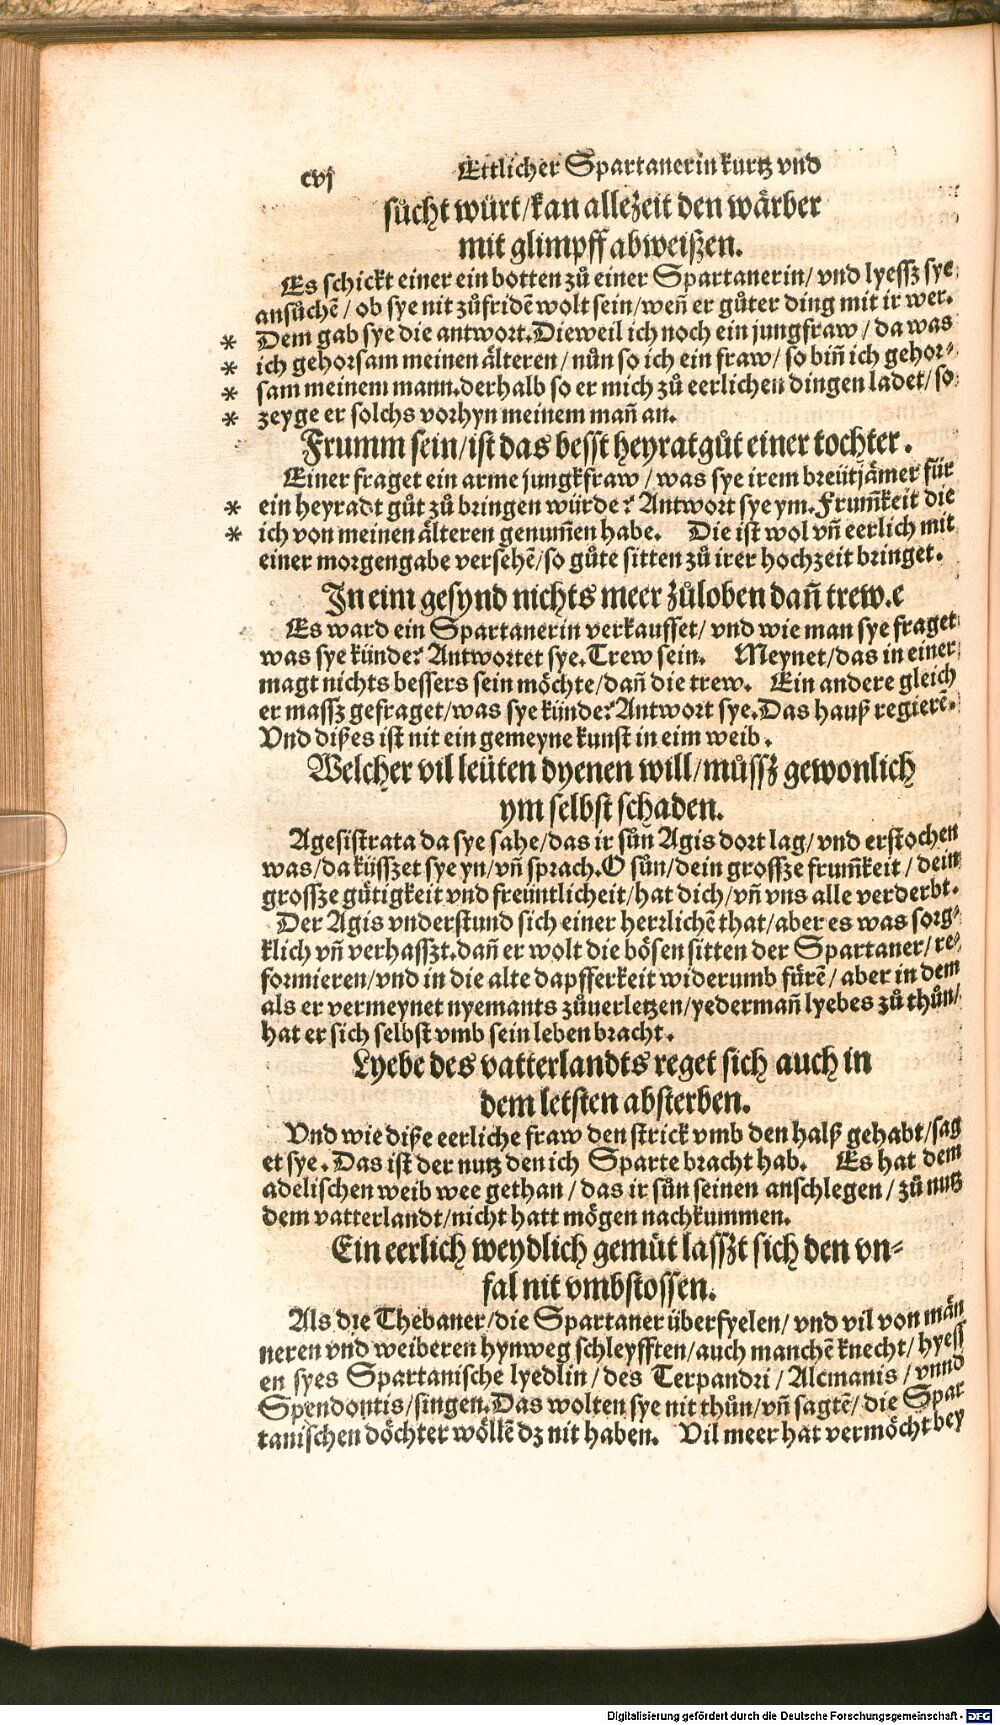 cvj Ettlicher Spartanerin kurtz vnd
sůcht würt/kan allezeit den wärber
mit glimpff abweißen.
Es schickt einer ein botten zů einer Spartanerin/ vnd lyessz sye
ansůchē/ ob sye nit zůfridē wolt sein/ weñ er gůter ding mit ir wer.
* Dem gab sye die antwort. Dieweil ich noch ein jungfraw/ da was
* ich gehorsam meinen älteren/ nůn so ich ein fraw/ so biñ ich gehor⸗
* sam meinem mann. derhalb so er mich zů eerlichen dingen ladet/ so
* zeyge er solchs vorhyn meinem mañ an.
Frumm sein/ist das besst heyratgůt einer tochter.
Einer fraget ein arme jungkfraw/ was sye irem breütjämer für
* ein heyradt gůt zů bringen würde? Antwort sye ym. Frum̃keit die
* ich von meinen älteren genum̃en habe. Die ist wol vñ eerlich mit
einer morgengabe versehē/so gůte sitten zů irer hochzeit bringet.
In eim gesynd nichts meer zůloben dañ trew.e
Es ward ein Spartanerin verkauffet/ vnd wie man sye fraget
was sye künde? Antwortet sye. Trew sein. Meynet/das in einer
magt nichts bessers sein möchte/dañ die trew. Ein andere gleich
er massz gefraget/was sye künde? Antwort sye. Das hauß regierē.
Vnd dißes ist nit ein gemeyne kunst in eim weib.
Welcher vil leüten dyenen will/můssz gewonlich
ym selbst schaden.
Agesistrata da sye sahe/das ir sůn Agis dort lag/ vnd erstochen
was/da küsszet sye yn/vñ sprach. O sůn/dein grossze frum̃keit/ dein
grossze gütigkeit vnd freüntlicheit/hat dich/vñ vns alle verderbt.
Der Agis vnderstund sich einer herzlichē that/aber es was sorg⸗
klich vñ verhasszt. dañ er wolt die bösen sitten der Spartaner/ re⸗
formieren/vnd in die alte dapfferkeit widerumb fürē/ aber in dem
als er vermeynet nyemants zůuerletzen/yedermañ lyebes zů thůn/
hat er sich selbst vmb sein leben bracht.
Lyebe des vatterlandts reget sich auch in
dem letsten absterben.
Vnd wie diße eerliche fraw den strick vmb den halß gehabt/sag
et sye. Das ist der nutz den ich Sparte bracht hab. Es hat dem
adelischen weib wee gethan/ das ir sůn seinen anschlegen/ zů nutz
dem vatterlandt/nicht hatt mögen nachkummen.
Ein eerlich weydlich gemüt lasszt sich den vn⸗
fal nit vmbstossen.
Als die Thebaner/die Spartaner überfyelen/ vnd vil von män
neren vnd weiberen hynweg schleyfften/auch manchē knecht/ hyess
en syes Spartanische lyedlin/ des Terpandri/ Alcmanis/ vnnd
Spendontis/singen. Das wolten sye nit thůn/vñ sagtē/ die Spar
tanischen döchter wöllē dz nit haben. Vil meer hat vermöcht bey
Digitalisierung gefördert durch die Deutsche Forschungsgemeinschaft - DFG